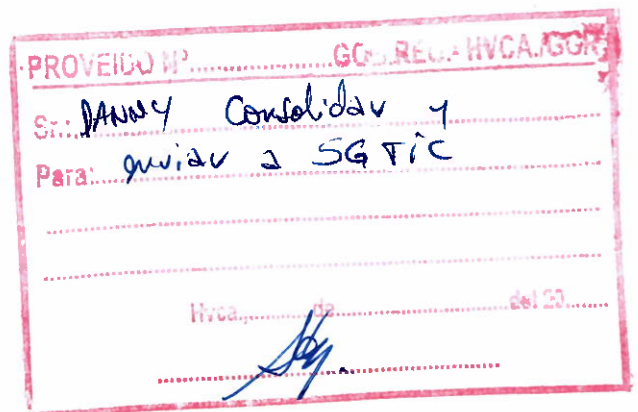 PROVEIDO Nº.....................GOB.REG.-HVCA./GGR
Sr.: DANNY Consolidar y
Para: enviar a SGTIC
Hvca.,............de............................del 20.......